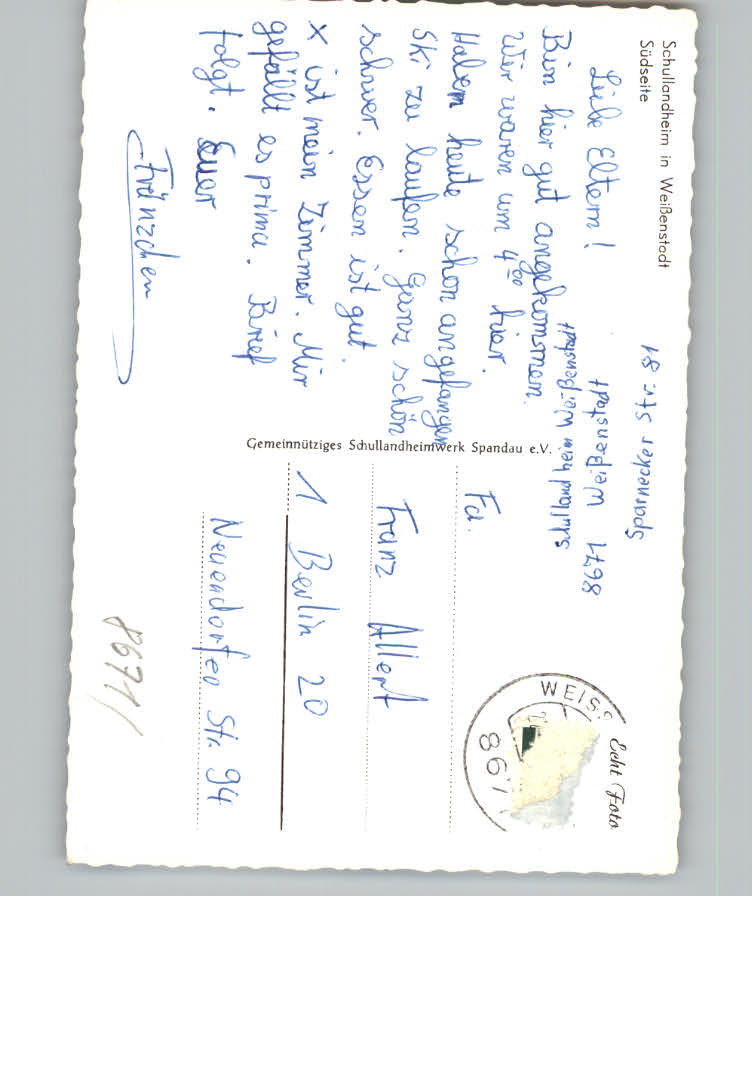 Schullandheim in Weißenstadt
Südseite
Liebe Eltern!
Bin hier gut angekommen.
Wir waren um 4⁰⁰ hier.
Haben heute schon angefangen
Ski zu laufen. Ganz schön
schwer. Essen ist gut.
X ist mein Zimmer. Mir
gefällt es prima. Brief
folgt. Euer
Fränzchen
Schulland heim Weißenstadt
8671 Weißenstadt
Sparnecker Str. 81
Gemeinnütziges Schullandheimwerk Spandau e.V.
Echt Foto
WEISS
867
Fa.
Franz Allert
1 Berlin 20
Neuendorfer Str. 94
8671/